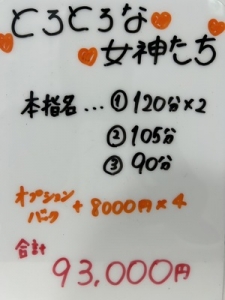 とろとろな
女神たち
本指名...①120分×2
②105分
③90分
オプション
バック +8000円×4
合計
93,000円